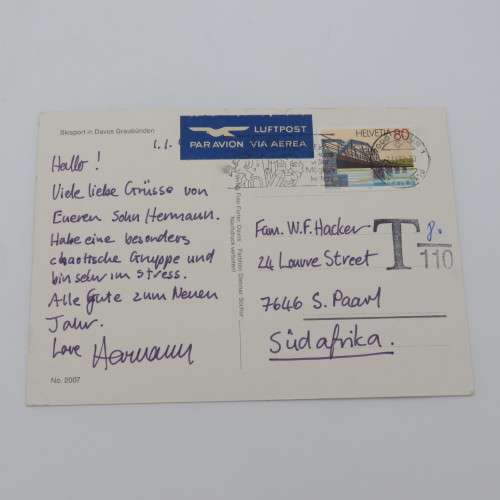 Skisport in Davos Graubünden
1.1.
LUFTPOST
PAR AVION VIA AEREA
HELVETIA 80
Hallo!
Viele liebe Grüsse von
Eueren Sohn Hermann.
Habe eine besonders
chaotische Gruppe und
bin sehr im Stress.
Alle Gute zum Neuen
Jahr.
Love Hermann
Fam. W.F. Hacker
24 Louvre Street
7646 S. Paarl
Südafrika.
T 8.
110
Nachdruck verboten
No. 2007